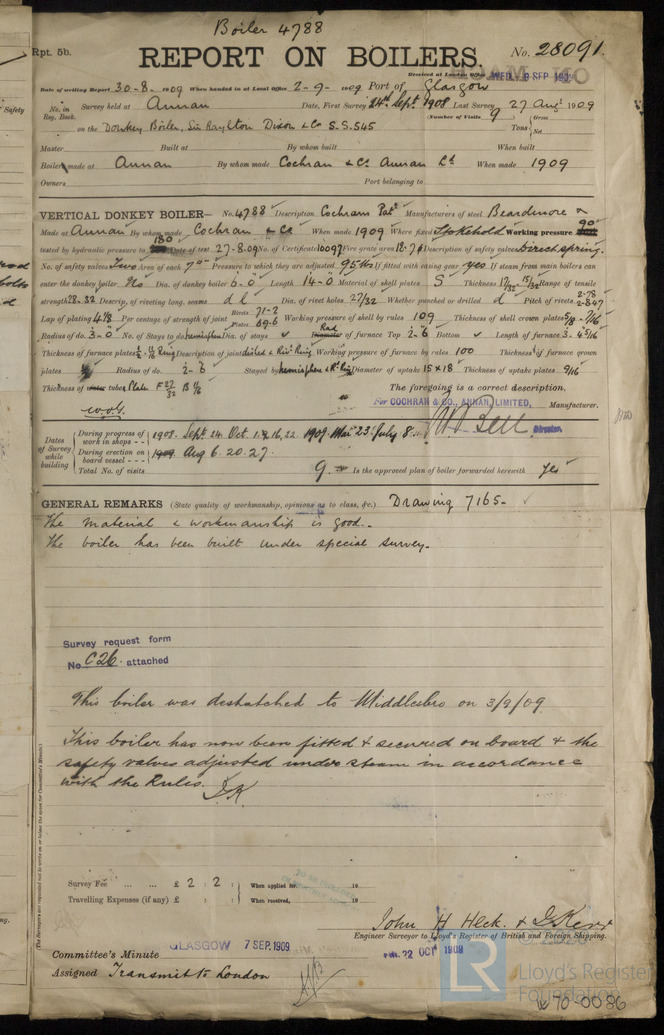 Boiler 4788
Rpt. 5b.
REPORT ON BOILERS.
No. 28091
Received at London Office WED. 9 SEP 1909
Date of writing Report 30-8-1909 When handed in at Local Office 2-9-1909 Port of Glasgow
No. in Reg. Book. Survey held at Annan Date, First Survey 24th Sept 1908 Last Survey 27 Augt 1909
(Number of Visits 9
on the Donkey Boiler, Sir Raylton Dixon & Co S.S. 545 Tons Gross Net
Master Built at By whom built When built
Boiler made at Annan By whom made Cochran & Co. Annan Ld When made 1909
Owners Port belonging to
VERTICAL DONKEY BOILER— No. 4788 Description Cochrans Patt Manufacturers of steel Beardmore
Made at Annan By whom made Cochran & Co When made 1909 Where fixed Stokehold Working pressure 90
tested by hydraulic pressure to 180 Date of test 27-8-09 No. of Certificate 10097 Fire grate area Description of safety valves Direct spring.
No. of safety valves Two Area of each Pressure to which they are adjusted 95 lbs If fitted with easing gear yes If steam from main boilers can
enter the donkey boiler No Dia. of donkey boiler 6-0 Length 14-0 Material of shell plates S Thickness 17/32 15/32 Range of tensile
strength 28.32 Descrip. of riveting long. seams d l Dia. of rivet holes 27/32 Whether punched or drilled d Pitch of rivets 2.78
Lap of plating 4 1/8 Per centage of strength of joint Rivets 71.2 Plates 69.6 Working pressure of shell by rules 109 Thickness of shell crown plates 5/8 - 11/16
Radius of do. 3-0 No. of Stays to do. hemispher Dia. of stays Rad of furnace Top 2-6 Bottom Length of furnace 3-
Thickness of furnace plates Description of joint Working pressure of furnace by rules 100 Thickness of furnace crown
plates Radius of do. 2-6 Stayed by hemispher Diameter of uptake 15 x 18 Thickness of uptake plates 9/16
Thickness of tubes Plate F 27/32 B 11/16 The foregoing is a correct description.
For COCHRAN & CO., ANNAN, LIMITED, Manufacturer.
Director.
Dates of Survey while building
During progress of work in shops - - 1908. Sept. 24. Oct. 1. 9. 16. 22. 1909. Mar 23. July 8.
During erection on board vessel - - - Aug 6. 20. 27.
Total No. of visits 9. Is the approved plan of boiler forwarded herewith yes
GENERAL REMARKS (State quality of workmanship, opinions as to class, &c.) Drawing 7165-
The material & workmanship is good.
The boiler has been built under special survey.
Survey request form
No. C26. attached
This boiler was despatched to Middlesbro on 3/9/09
This boiler has now been fitted & secured on board & the
safety valves adjusted under steam in accordance
with the Rules. JK
Survey Fee ... ... £ 2 : 2 : When applied for, 19
Travelling Expenses (if any) £ : : When received, 19
John H Heck. & J Kerr
Engineer Surveyor to Lloyd's Register of British and Foreign Shipping.
Committee's Minute GLASGOW 7 SEP. 1909 FRI. 22 OCT 1909
Assigned Transmit to London
LR Lloyd's Register Foundation
W90-0086